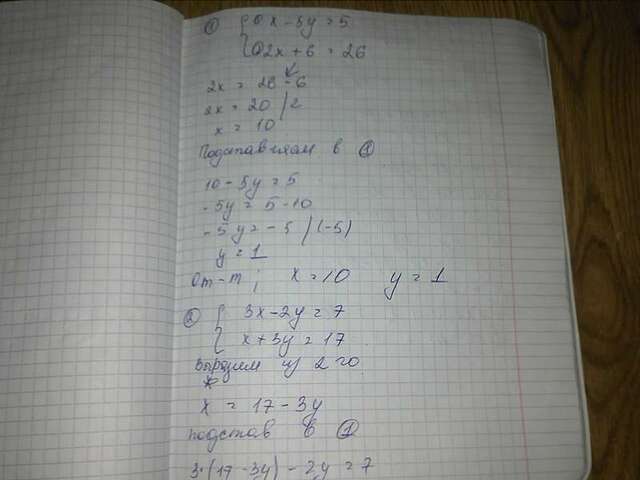 ① { x - 5y = 5
{ 2x + 6 = 26
2x = 26 - 6
2x = 20 / 2
x = 10
Подставляем в ①
10 - 5y = 5
-5y = 5 - 10
-5y = -5 / (-5)
y = 1
От-т; x = 10 y = 1
② { 3x - 2y = 7
{ x + 3y = 17
Выразим из 2го
x
x = 17 - 3y
подстав в ①
3·(17 - 3y) - 2y = 7